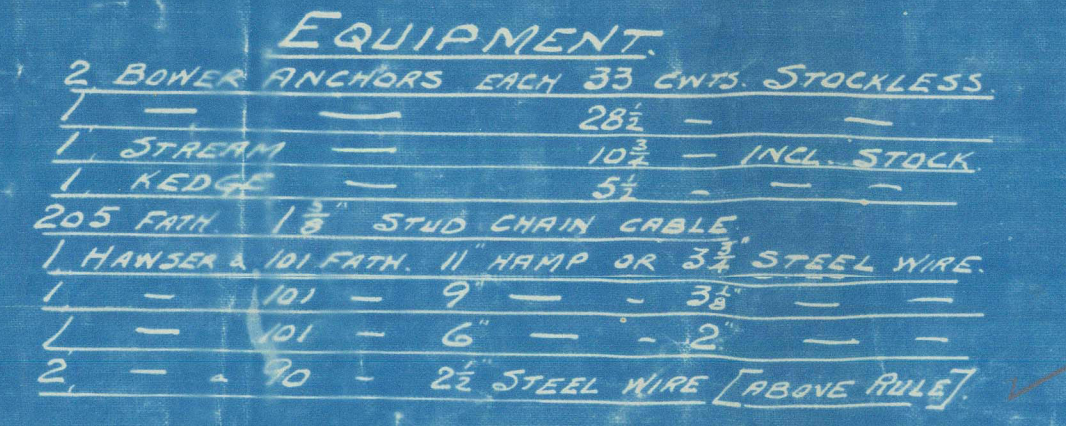 EQUIPMENT.
2 BOWER ANCHORS EACH 33 CWTS. STOCKLESS.
1 — — 28½ — —
1 STREAM — 10¾ — INCL. STOCK
1 KEDGE — 5½ - — —
205 FATH. 1⅜" STUD CHAIN CABLE.
1 HAWSER à 101 FATH. 11" HAMP OR 3¾" STEEL WIRE.
1 — 101 — 9" — - 3⅛" — —
1 — 101 — 6" — - 2" — —
2 — à 90 - 2½" STEEL WIRE [ABOVE RULE].